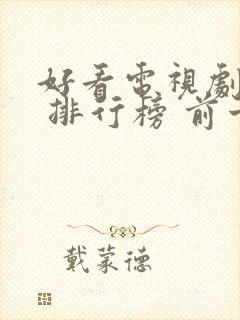 好看電視劇
排行榜 前
戴蒙德